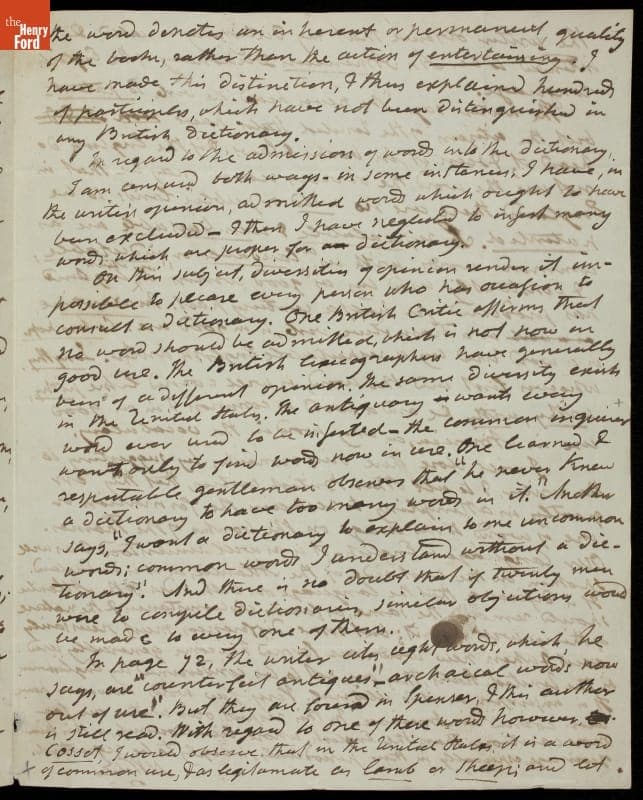 the Henry Ford
the word denotes an inherent or permanent quality
of the book, rather than the action of entertaining. I
have made this distinction, & thus explained hundreds
of participles, which have not been distinguished in
any British dictionary.
In regard to the admission of words into the dictionary,
I am censured both ways - in some instances, I have, in
the writers opinion, admitted words which ought to have
been excluded - & then I have neglected to insert many
words which are proper for a dictionary.
On this subject, diversities of opinion render it im-
possible to please every person who has occasion to
consult a dictionary. One British Critic affirms that
no word should be admitted, which is not now in
good use. The British lexicographers have generally
been of a different opinion. The same diversity exists
in the United States. The antiquary wants every
word ever used to be inserted - the common inquirer
wants only to find words now in use. One learned &
respectable gentleman observes that "he never knew
a dictionary to have too many words in it." Another
says, "I want a dictionary to explain to me uncommon
words; common words I understand without a dic-
tionary." And there is no doubt that if twenty men
were to compile dictionaries, similar objections would
be made to every one of them.
In page 72, the writer cites eight words, which, he
says, are "counterfeit antiques" - archaical words now
out of use". But they are found in Spenser, & this author
is still read. With regard to one of these words however,
Cosset, I would observe, that in the United States, it is a word
+ of common use, & as legitimate as lamb or sheep; and cot